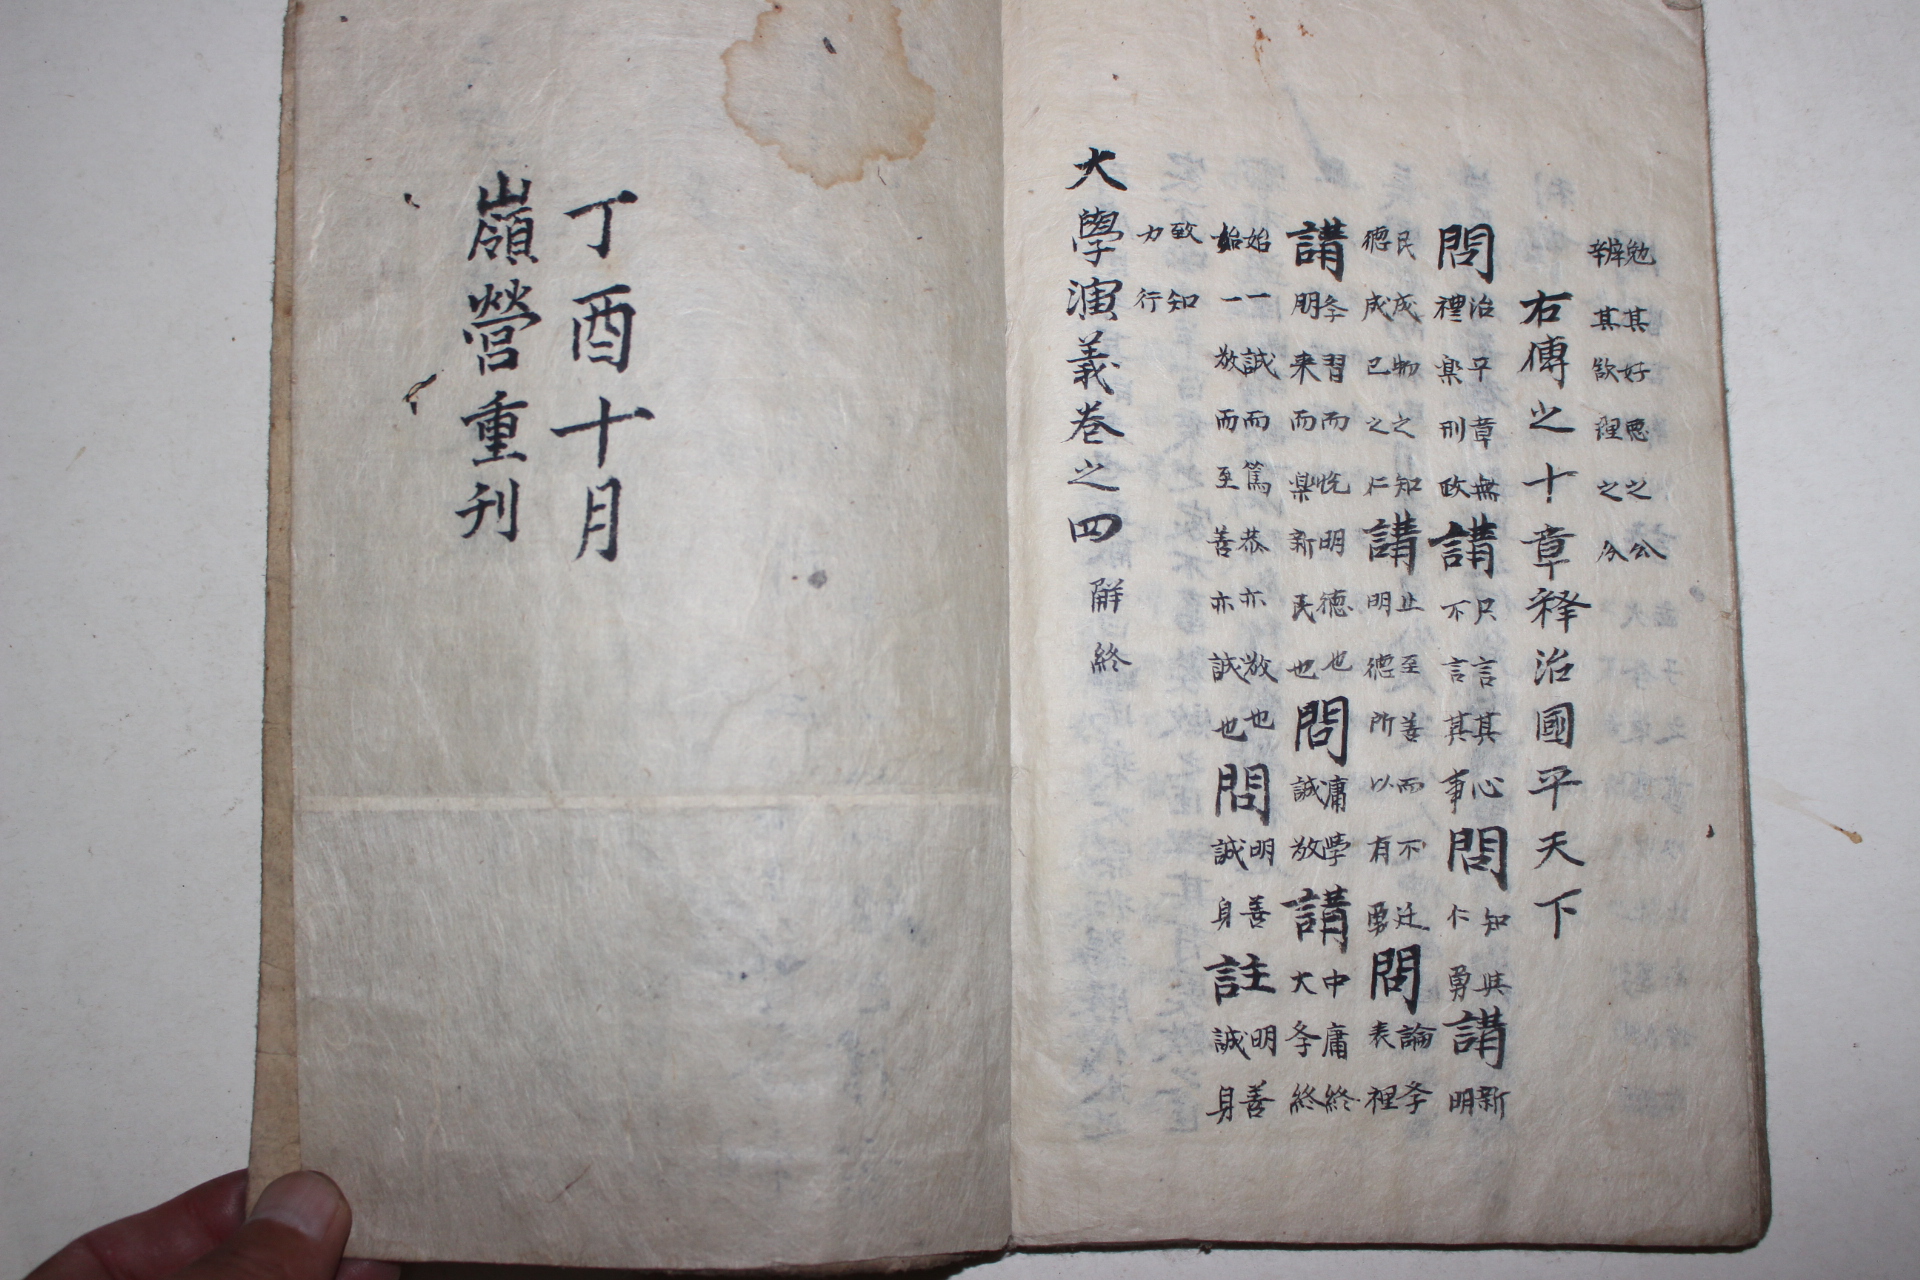 勉其好悪之公
辨其欲理之分
右傳之十章释治國平天下
問治平章無禮楽刑政講只言其心不言其事問知與仁勇講新明
民成物之知德成己之仁講止至善而不迁明德所以有勇問論斈表裡
講斈習而悅明德也朋来而楽新民也問庸學誠敬講中庸終大斈終
始一誠而篤恭亦敬也始一敬而至善亦誠也問明善誠身註明善誠身
致知力行
大學演義卷之四 解終
丁酉十月
嶺營重刊